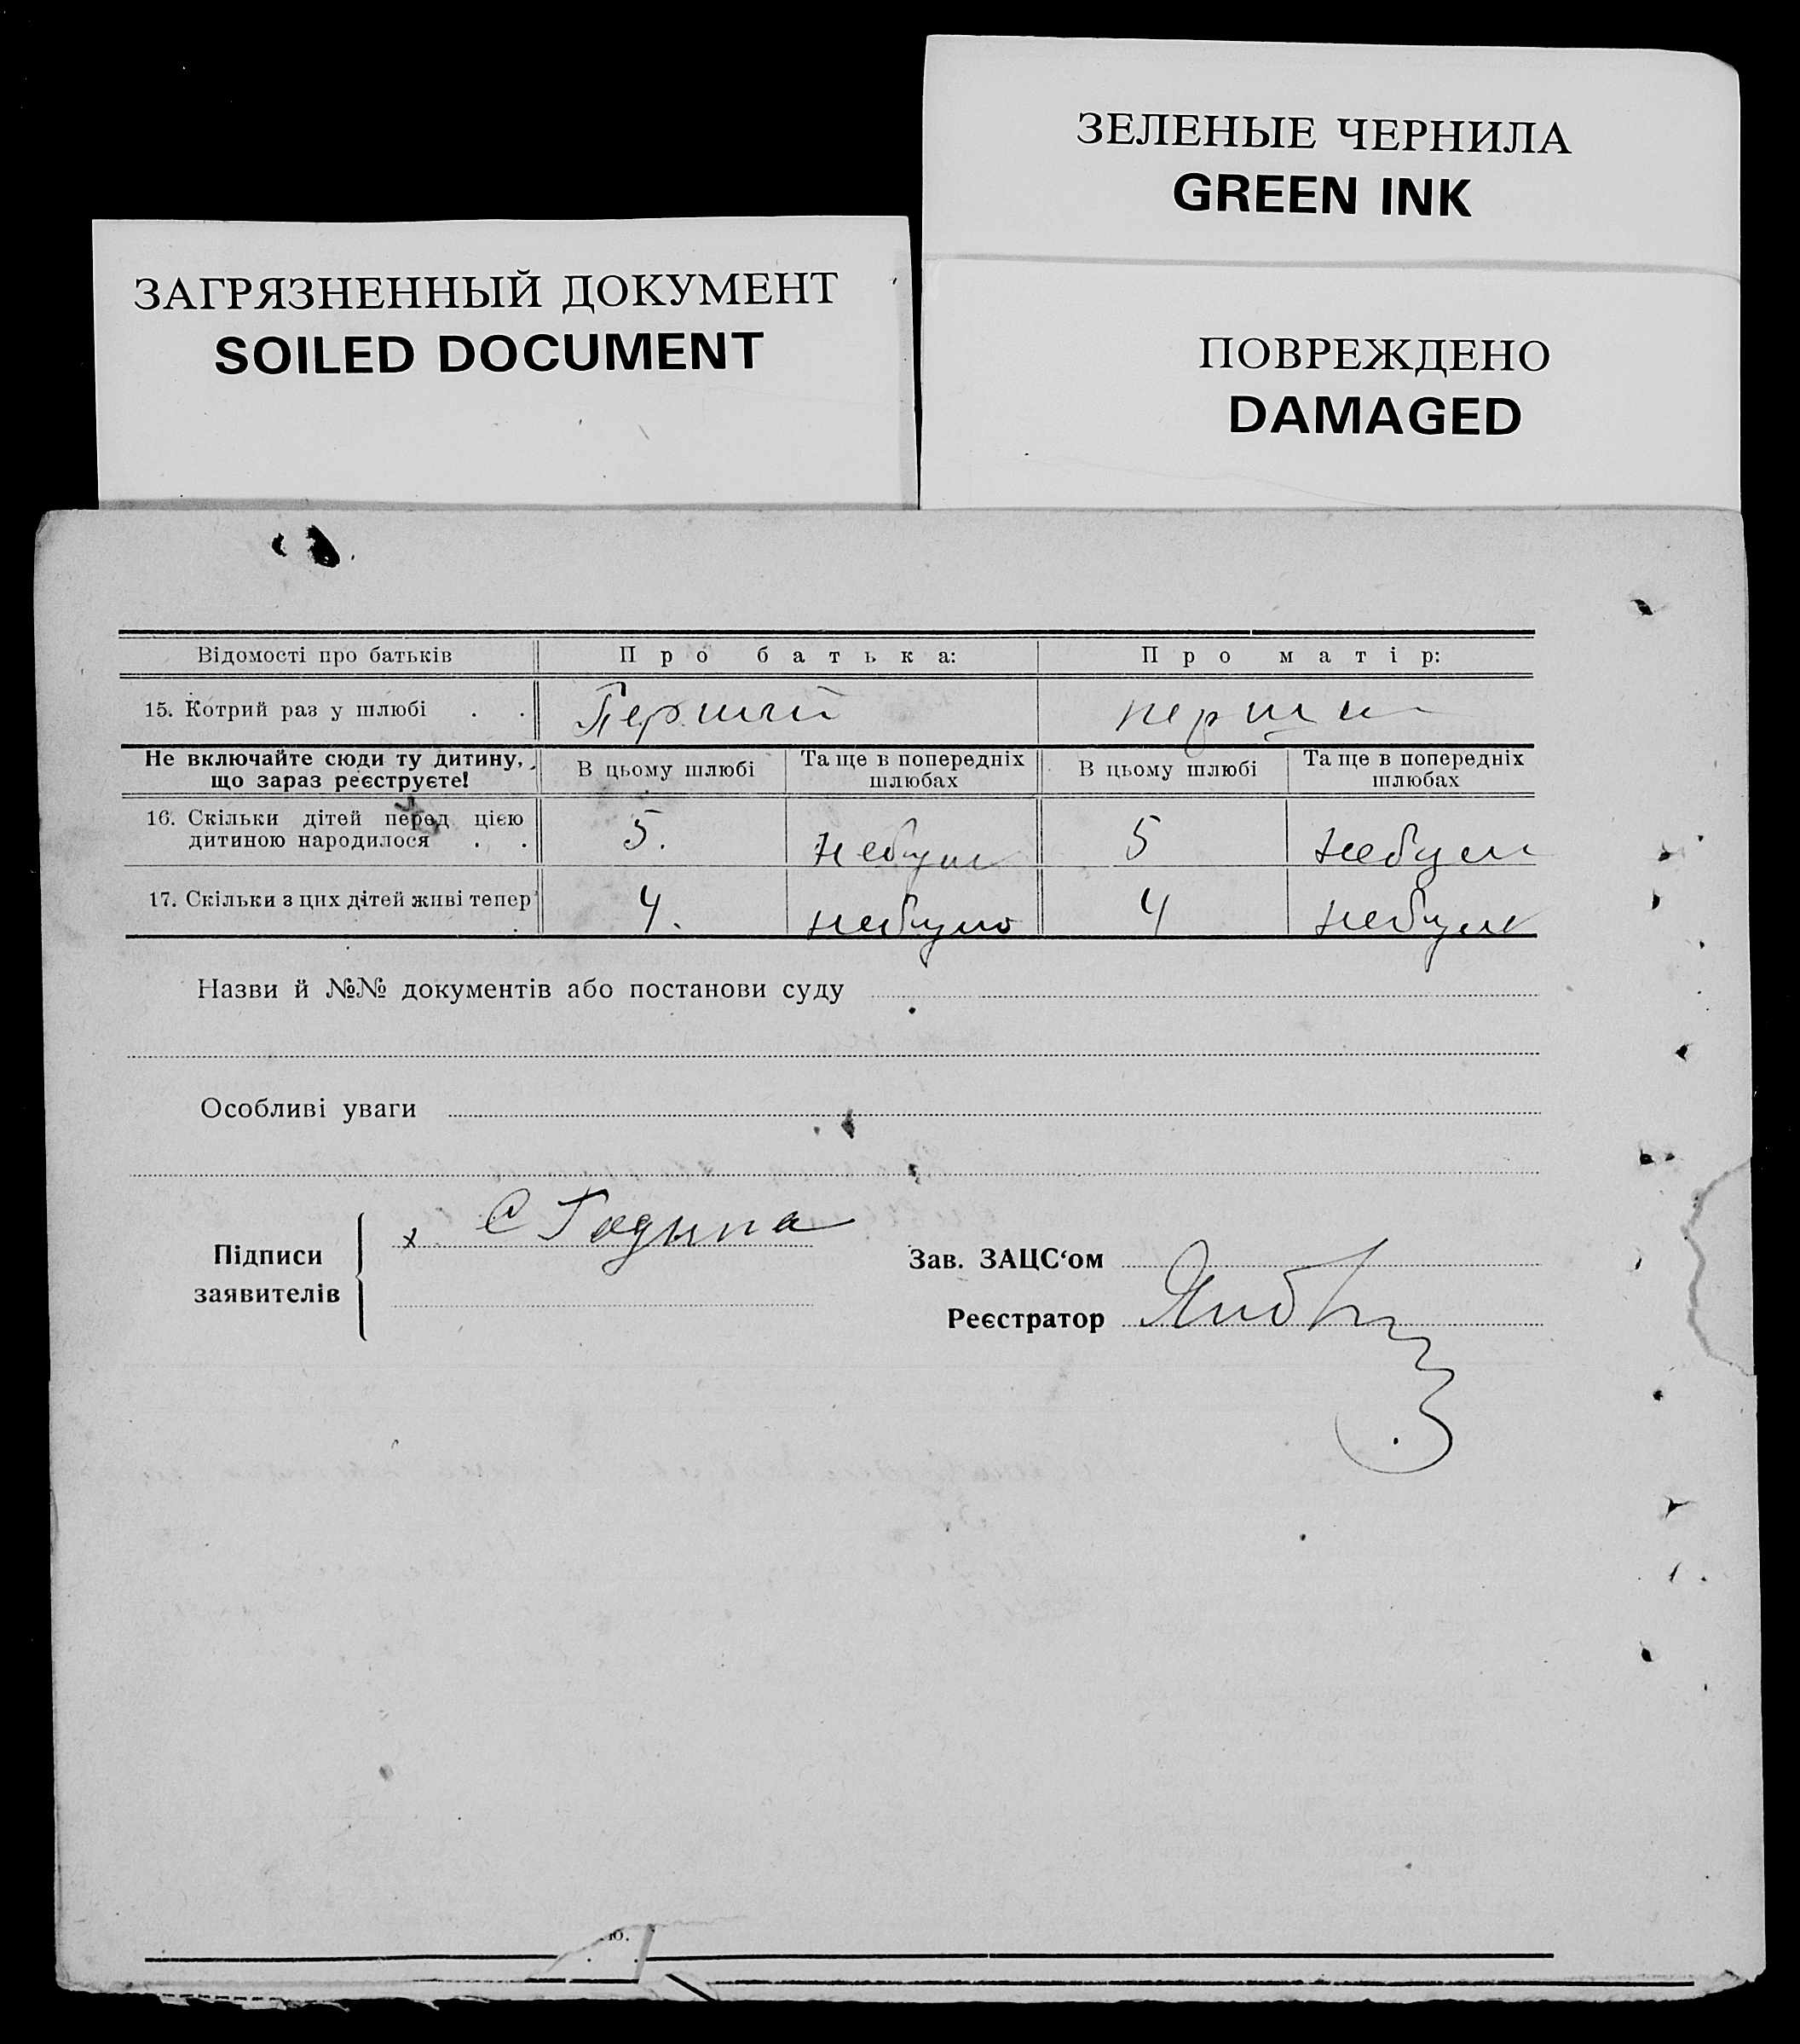 ЗЕЛЕНЫЕ ЧЕРНИЛА
GREEN INK
ЗАГРЯЗНЕННЫЙ ДОКУМЕНТ
SOILED DOCUMENT
ПОВРЕЖДЕНО
DAMAGED
Відомості про батьків Про батька: Про матір:
15. Котрий раз у шлюбі . . Перший перши
Не включайте сюди ту дитину, що зараз реєструєте! В цьому шлюбі Та ще в попередніх шлюбах В цьому шлюбі Та ще в попередніх шлюбах
16. Скільки дітей перед цією
дитиною народилося . . 5. небули 5 небули
17. Скільки з цих дітей живі тепер . 4. небуло 4 небули
Назви й №№ документів або постанови суду
Особливі уваги
Підписи
заявителів
х С Годына
Зав. ЗАЦС‘ом
Реєстратор
ю.